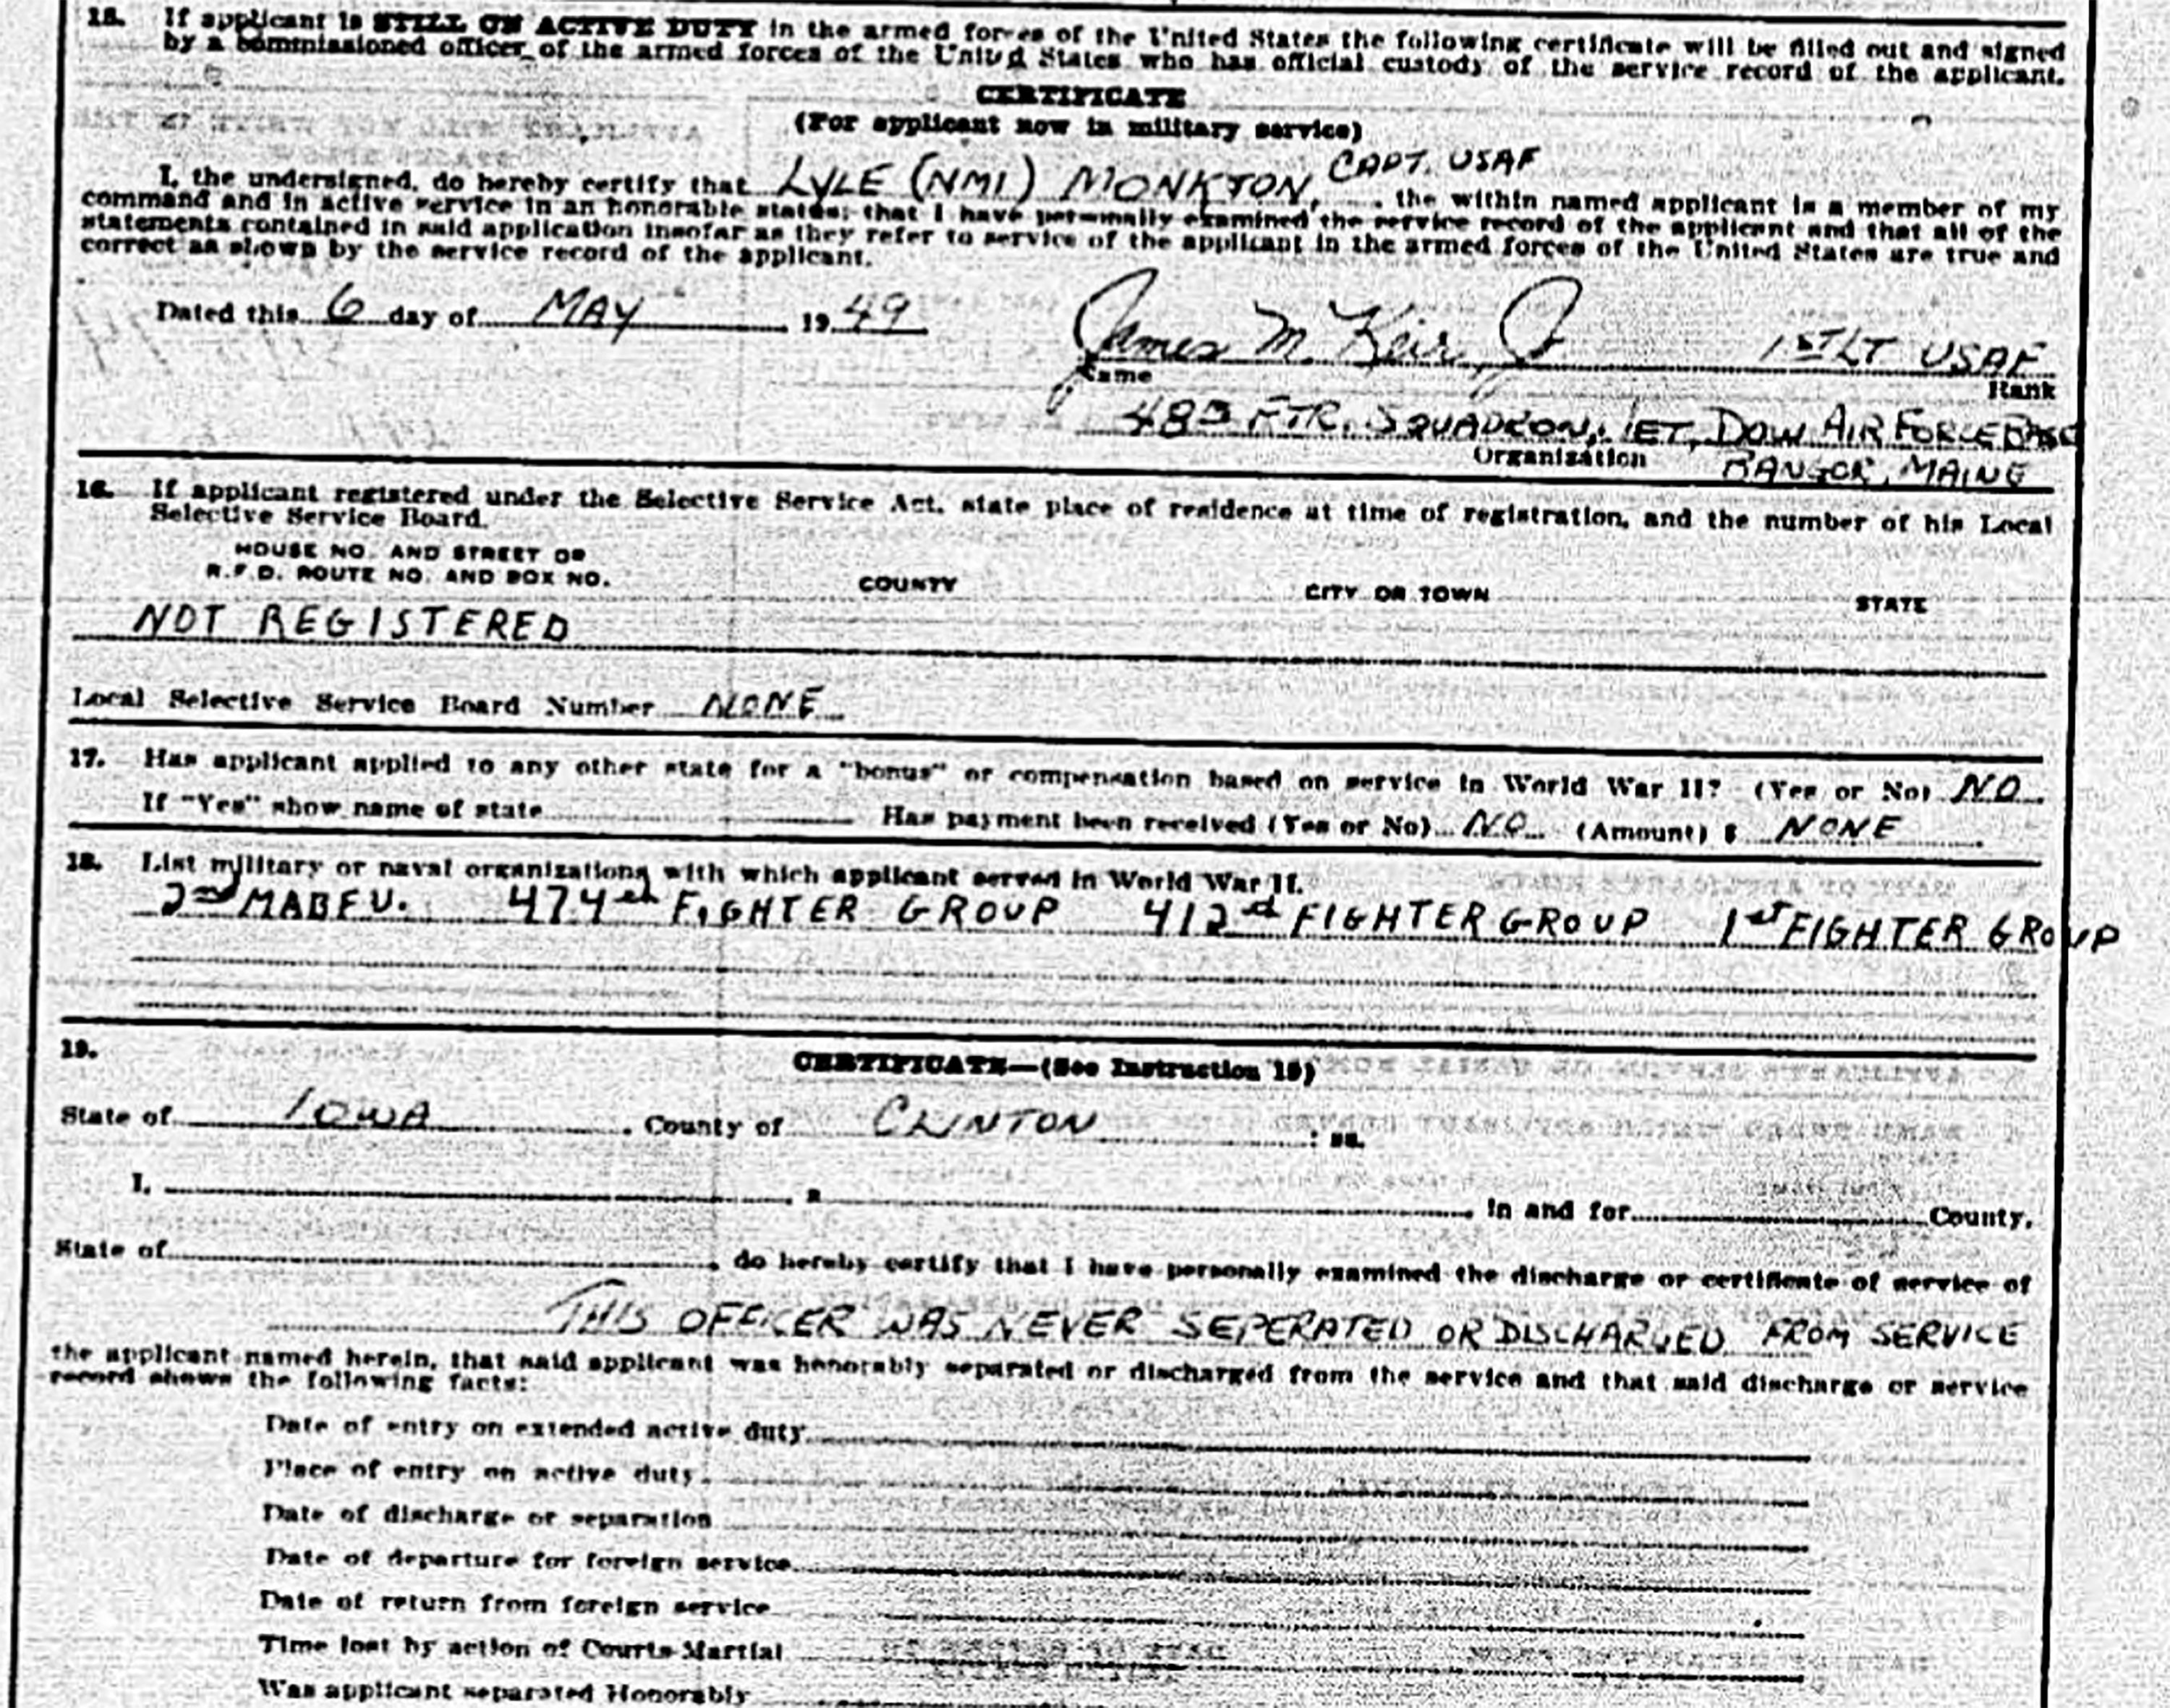 15. If applicant is STILL ON ACTIVE DUTY in the armed forces of the United States the following certificate will be filled out and signed
by a commissioned officer of the armed forces of the United States who has official custody of the service record of the applicant.
CERTIFICATE
(For applicant now in military service)
I, the undersigned, do hereby certify that LYLE (NMI) MONKTON, CAPT. USAF, the within named applicant is a member of my
command and in active service in an honorable status; that I have personally examined the service record of the applicant and that all of the
statements contained in said application insofar as they refer to service of the applicant in the armed forces of the United States are true and
correct as shown by the service record of the applicant.
Dated this 6 day of MAY 1949
James M. Keir, Jr 1ST LT USAF
Name Rank
FTR. SQUADRON, JET, DOW AIR FORCE BASE
Organization BANGOR, MAINE
16. If applicant registered under the Selective Service Act, state place of residence at time of registration, and the number of his Local
Selective Service Board.
HOUSE NO. AND STREET OR
R.F.D. ROUTE NO. AND BOX NO. COUNTY CITY OR TOWN STATE
NOT REGISTERED
Local Selective Service Board Number NONE
17. Has applicant applied to any other state for a "bonus" or compensation based on service in World War II? (Yes or No) NO
If "Yes" show name of state Has payment been received (Yes or No) NO (Amount) $ NONE
18. List military or naval organizations with which applicant served in World War II.
2nd MABFU. 474th FIGHTER GROUP 412th FIGHTER GROUP 1st FIGHTER GROUP
19. CERTIFICATE—(See Instruction 19)
State of IOWA, County of CLINTON : ss.
I, , a , in and for County,
State of , do hereby certify that I have personally examined the discharge or certificate of service of
THIS OFFICER WAS NEVER SEPERATED OR DISCHARGED FROM SERVICE
the applicant named herein, that said applicant was honorably separated or discharged from the service and that said discharge or service
record shows the following facts:
Date of entry on extended active duty
Place of entry on active duty
Date of discharge or separation
Date of departure for foreign service
Date of return from foreign service
Time lost by action of Courts-Martial
Was applicant separated Honorably